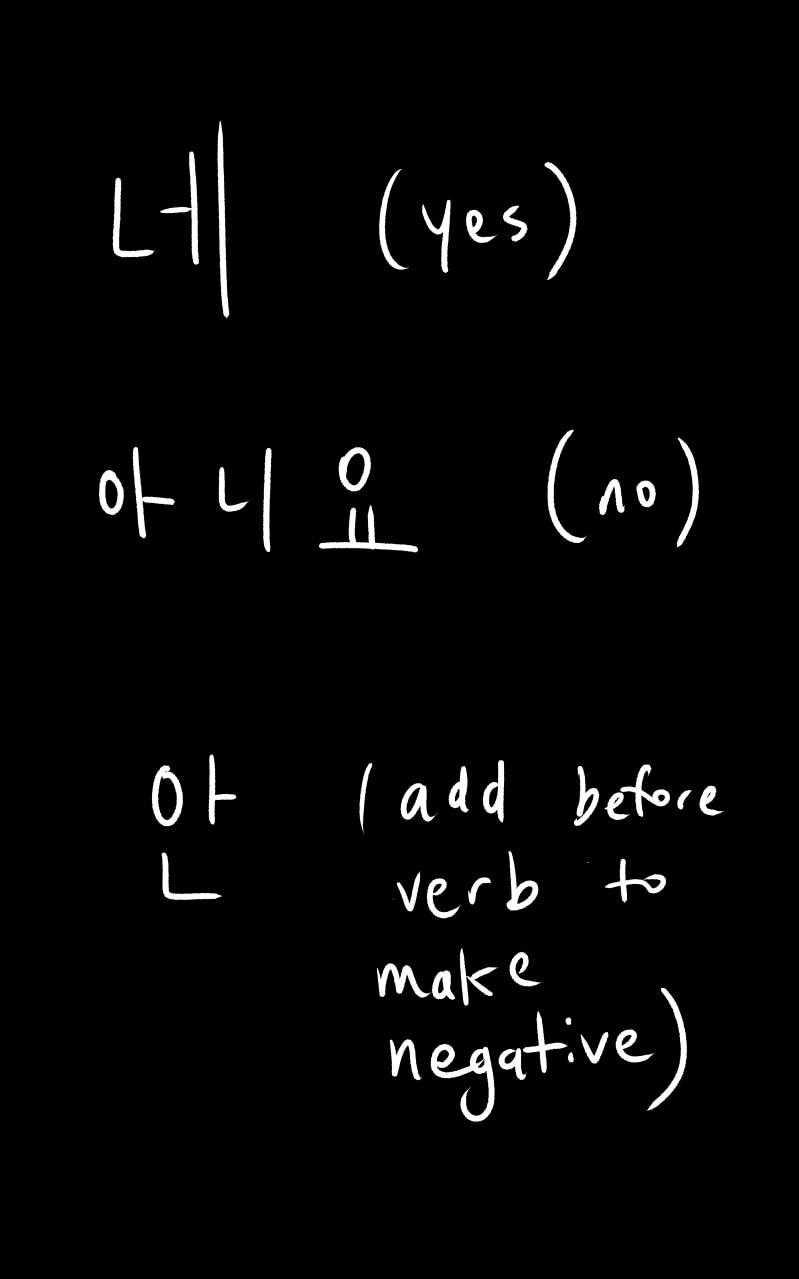 네 (yes)
아니요 (no)
안 (add before
verb to
make
negative)